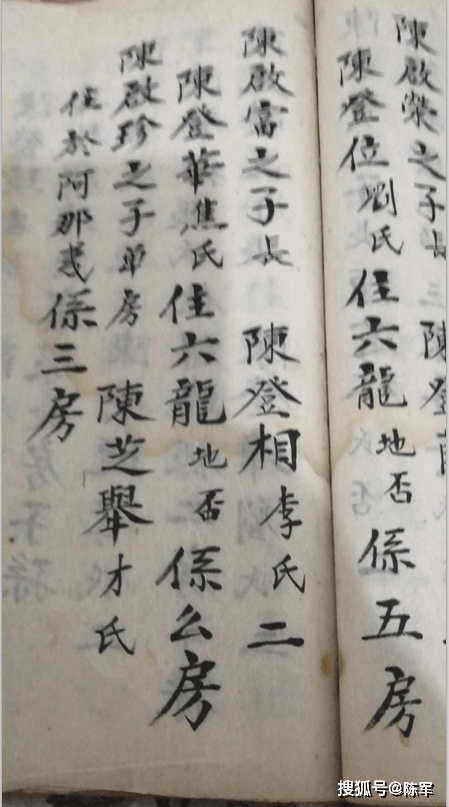 陳啟榮之子長三 陳登
陳登位劉氏住六龍地否係五房
陳啟富之子長 陳登相李氏二
陳登華焦氏住六龍地否係么房
陳啟珍之子單房 陳芝舉才氏
住於阿那戎係三房
搜狐号@陈军